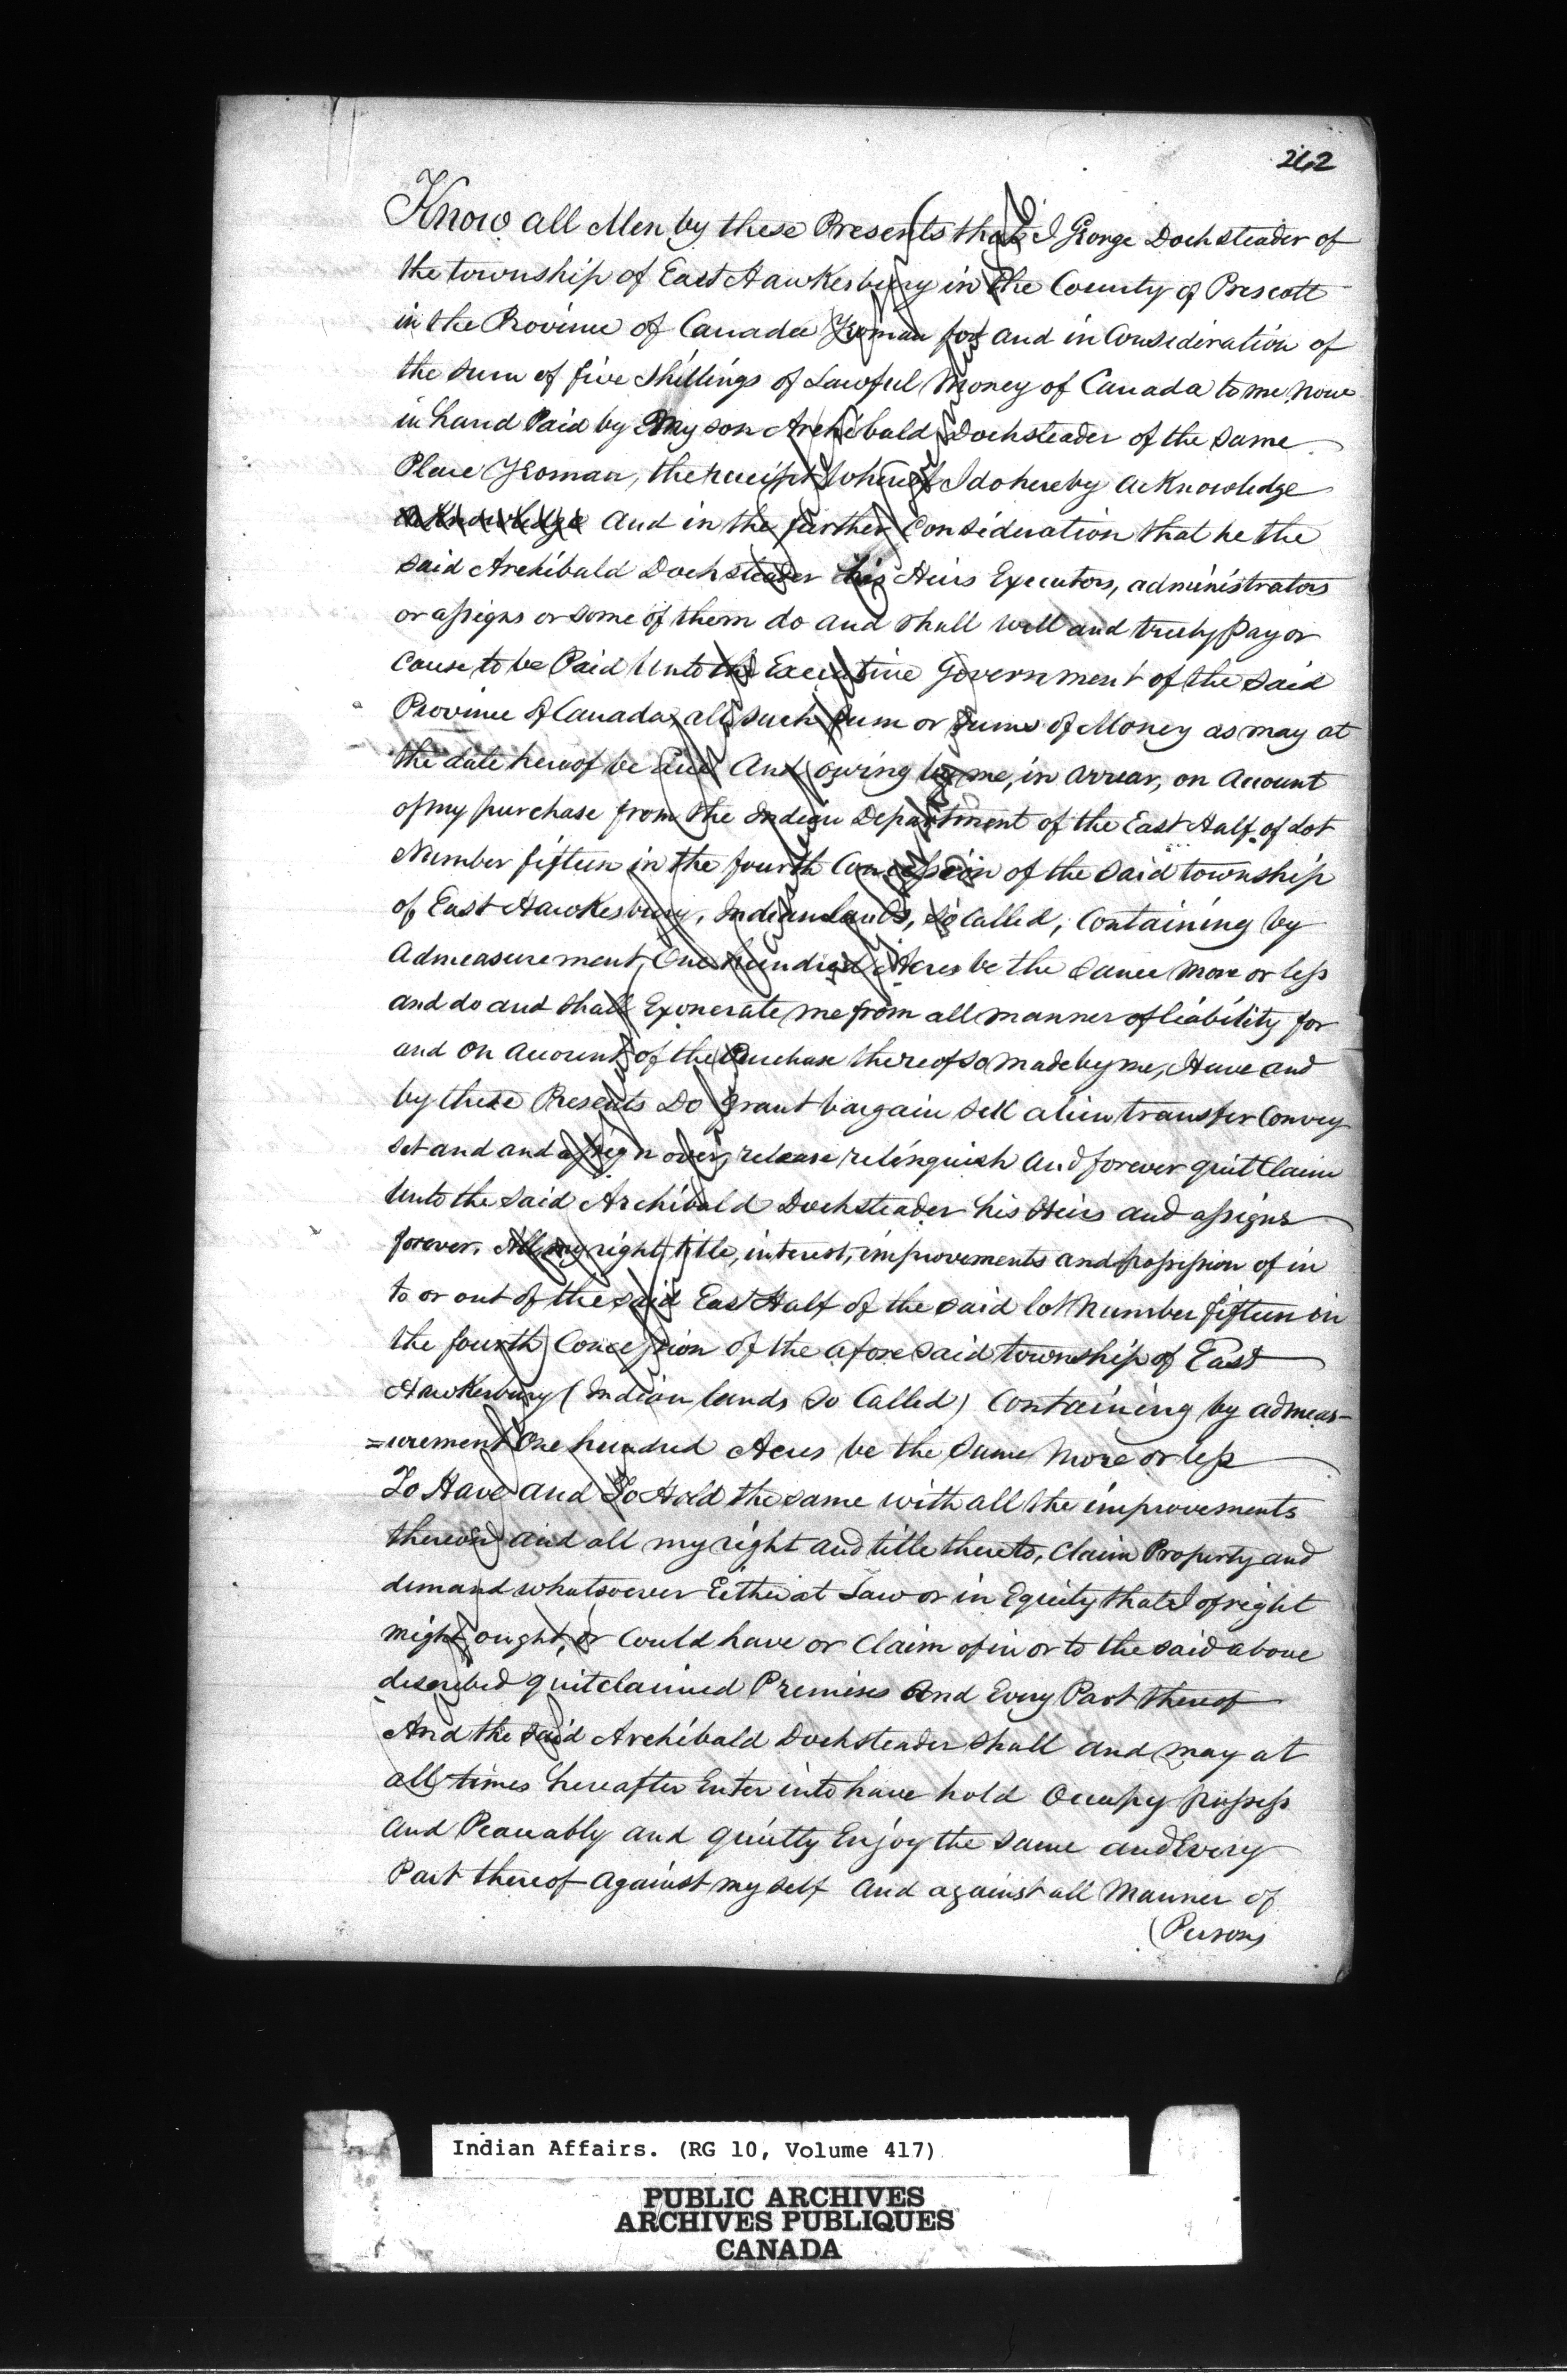 262
Know all Men by these Presents that I George Dochsteader of
the township of East Hawkesbury in the County of Prescott
in the Province of Canada Yeoman for and in Consideration of
the sum of five Shillings of Lawful Money of Canada to me now
in hand Paid by my son Archibald Dochsteader of the same
Place Yeoman, the receipt whereof I do hereby acknowledge
acknowledge and in the further Consideration that he the
said Archibald Dochsteader his Heirs Executors, administrators
or assigns or some of them do and shall well and truly Pay or
Cause to be Paid Unto the Executive Government of the said
Province of Canada, all such sum or sums of Money as may at
the date hereof be due And owing by me, in arrear, on Account
of my purchase from the Indian Department of the East Half of Lot
Number fifteen in the fourth Concession of the said township
of East Hawkesbury, Indian Lands, so Called, Containing by
Admeasurement, One hundred Acres be the same more or less
and do and shall Exonerate me from all manner of liability for
and on account of the Purchase thereof so made by me, Have and
by these Presents Do Grant bargain sell alien transfer Convey
set and and assign over, release relinquish and forever quit Claim
Unto the said Archibald Dochsteader his Heirs and assigns
forever. All my right, title, interest, improvements and possession of in
to or out of the said East Half of the said lot Number fifteen in
the fourth Concession of the aforesaid township of East
Hawkesbury (Indian lands so Called) Containing by admeas-
=urement One hundred Acres be the same More or less
To Have and To Hold the same with all the improvements
thereon and all my right and title thereto, Claim Property and
demand whatsoever Either at Law or in Equity that I of right
might, ought, or Could have or Claim of in or to the said above
described quitclaimed Premises And Every Part thereof
And the said Archibald Dochsteader shall and may at
all times hereafter Enter into have hold Occupy possess
and Peaceably and quietly Enjoy the same and Every
Part thereof against my self and against all Manner of
(Persons
Indian Affairs. (RG 10, Volume 417)
PUBLIC ARCHIVES
ARCHIVES PUBLIQUES
CANADA